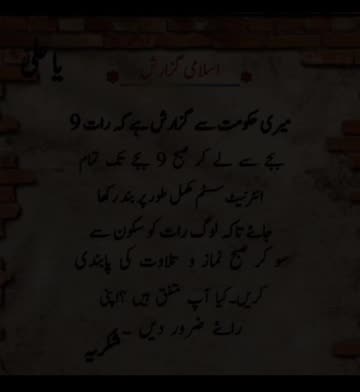 یا علی
اسلامی گزارش
میری حکومت سے گزارش ہے کہ رات 9
بجے سے لے کر صبح 9 بجے تک تمام
انٹرنیٹ سسٹم مکمل طور پر بند رکھا
جائے تاکہ لوگ رات کو سکون سے
سو کر صبح نماز و تلاوت کی پابندی
کریں۔ کیا آپ متفق ہیں ؟ اپنی
رائے ضرور دیں ۔ شکریہ